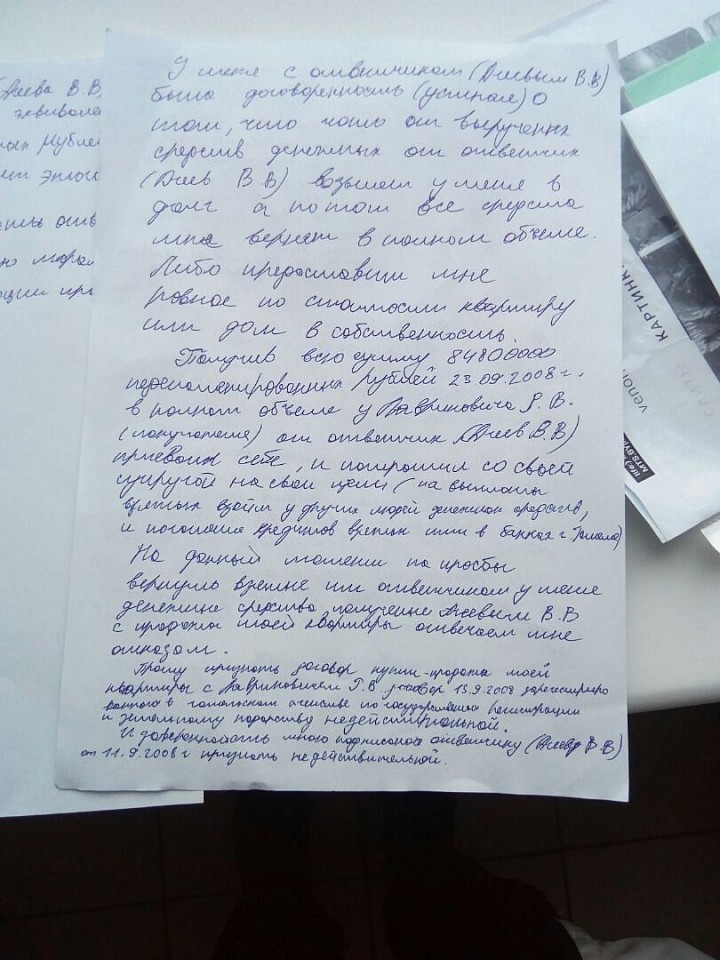 У меня с ответчиком (Диевым В.В)
была договоренность (устная) о
том, что часть от вырученных
средств денежных от ответчик
(Диев В В) возьмет у меня в
долг а потом все средства
мне вернет в полном объеме.
Либо предоставит мне
ровное по стоимости квартиру
или дом в собственность.
Получив всю сумму 84800000
неденоминированных рублей 23 09.2008 г.
в полном объеме у Лавриновича Р. В.
(покупателя) он ответчик (Диев В.В)
присвоил себе, и потратил со своей
супругой на свои цели (на выплаты
взятых взаймы у других людей денежных средств,
и погашение кредитов взятых ими в банках г.
На данный момент на просьбы
вернуть взятые им ответчиком у меня
денежные средства, полученные Диевым В.В
с продажи моей квартиры отвечает мне
отказом.
Прошу признать договор купли-продажи моей
квартиры с Лавриновичем Р.В. договор 13.9.2008 зарегистриро
ванного в гомельском агентстве по государственной регистрации
и земельному кадастру недействительной.
И доверенность мною подписаной ответчику (Диеву В В)
от 11.9.2008 г признать недействительной.
Диева В В,
эквивале
ных рубле
КАРТИНК
velcom
life:)
MTS BY